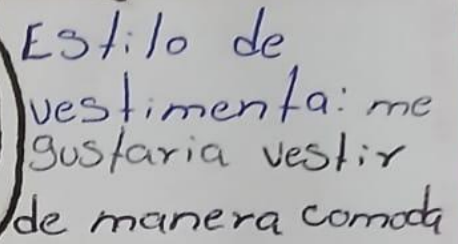 Estilo de
vestimenta: me
gustaria vestir
de manera comoda